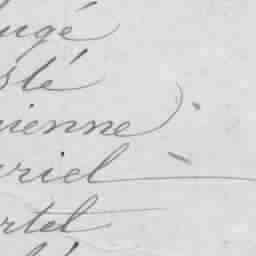 ugé
slé
uienne
uriel
rtel